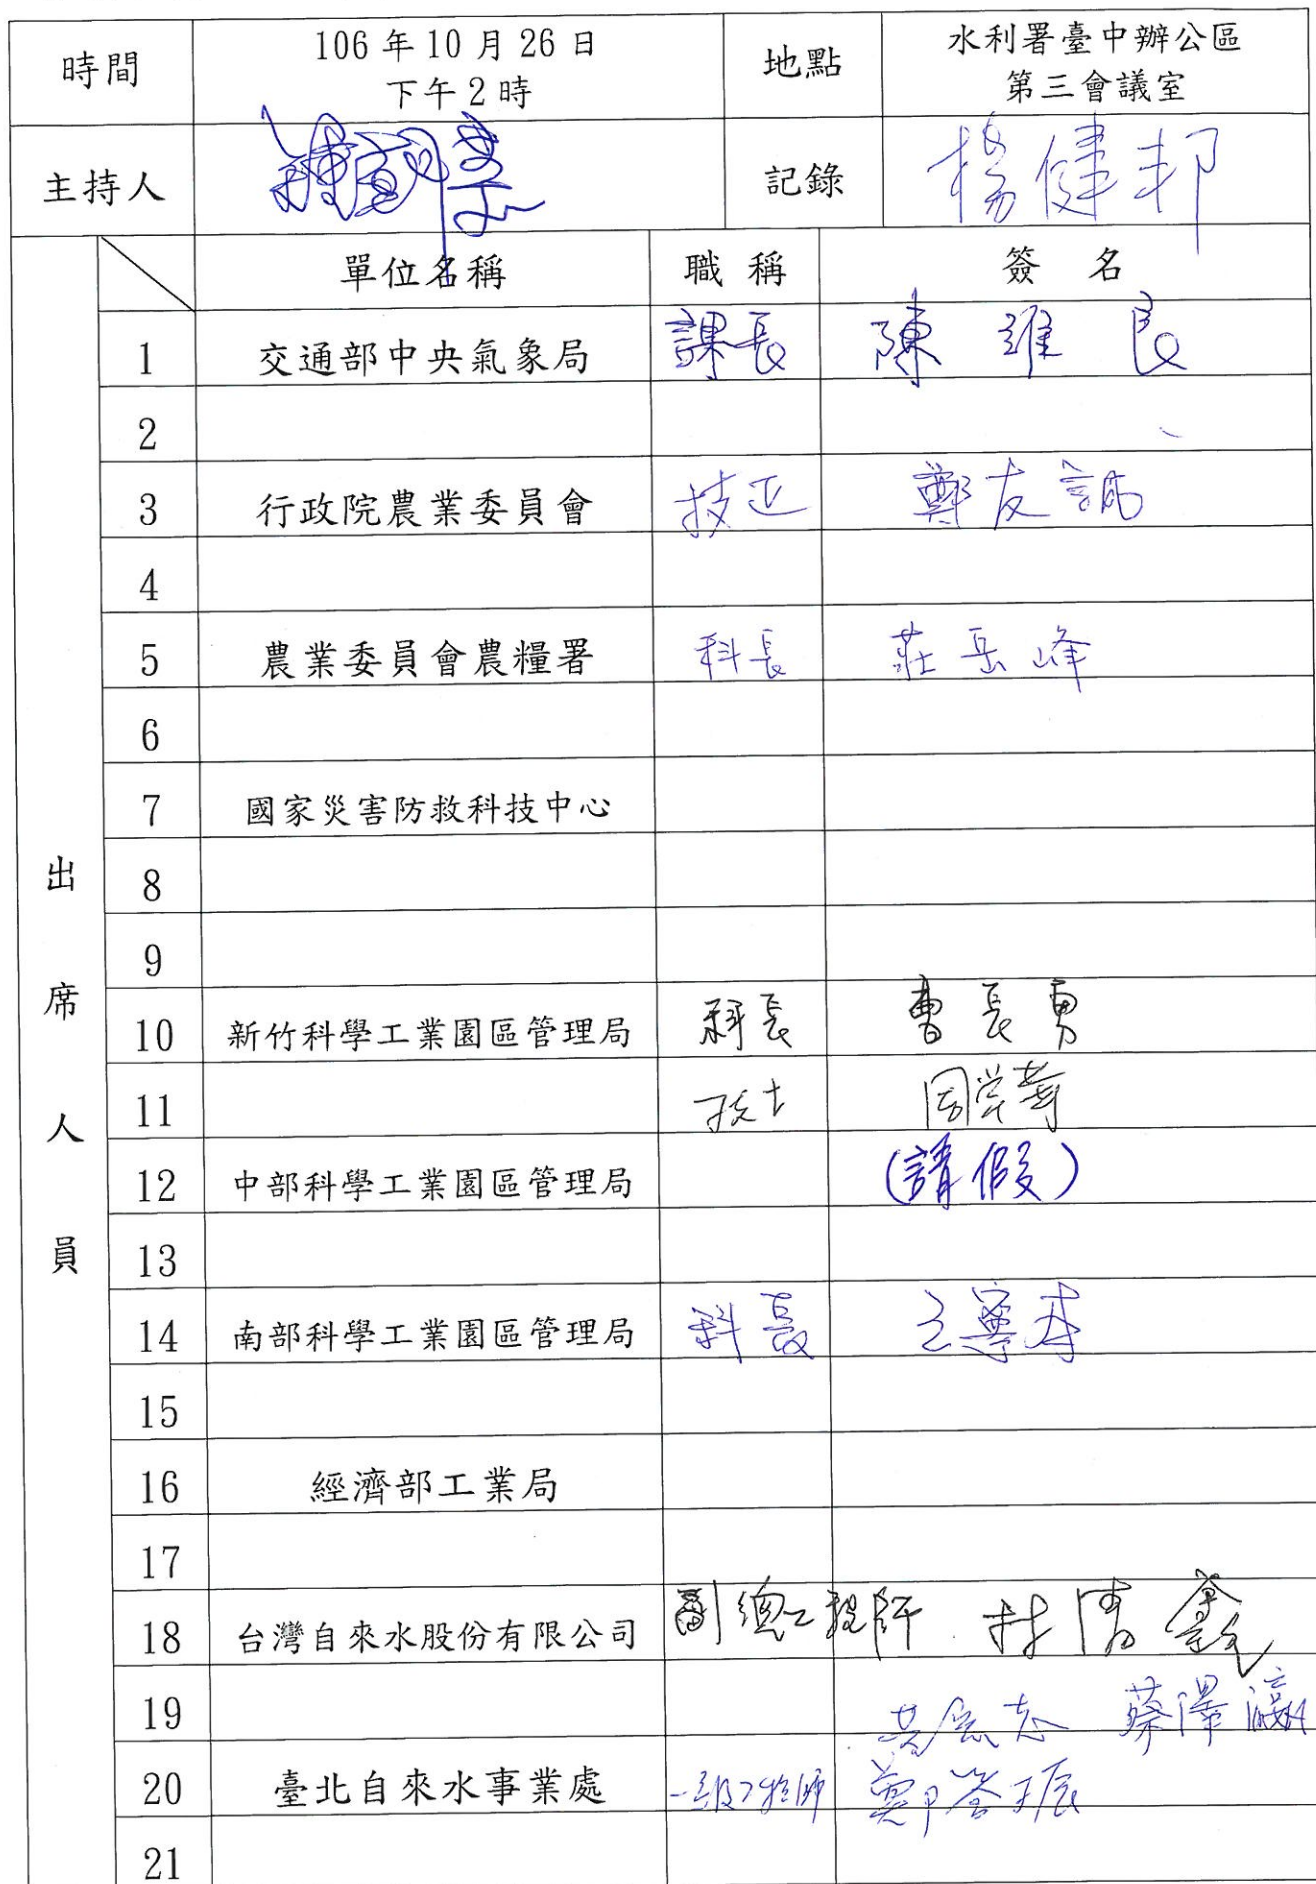 時間 106年10月26日 下午2時 地點 水利署臺中辦公區 第三會議室
主持人 記錄 楊健邦
出席人員
單位名稱 職稱 簽名
1 交通部中央氣象局 課長 陳維良
2
3 行政院農業委員會 技正 鄭友誠
4
5 農業委員會農糧署 科長 莊岳峰
6
7 國家災害防救科技中心
8
9
10 新竹科學工業園區管理局 科長 曹長勇
11 技士
12 中部科學工業園區管理局 (請假)
13
14 南部科學工業園區管理局 科長
15
16 經濟部工業局
17
18 台灣自來水股份有限公司 副總工程師 林清鑫
19 蔡澤瀛
20 臺北自來水事業處 一級工程師
21